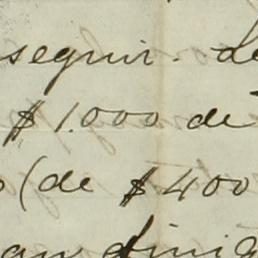 seguir. de
$1.000 de
(de $400